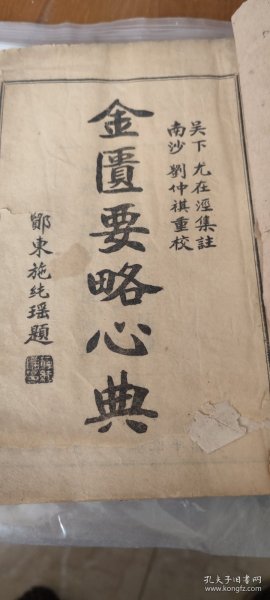 吴下 尤在涇集註
南沙 劉仲祺重校
金匱要略心典
鄮東施純瑶題
孔夫子旧书网